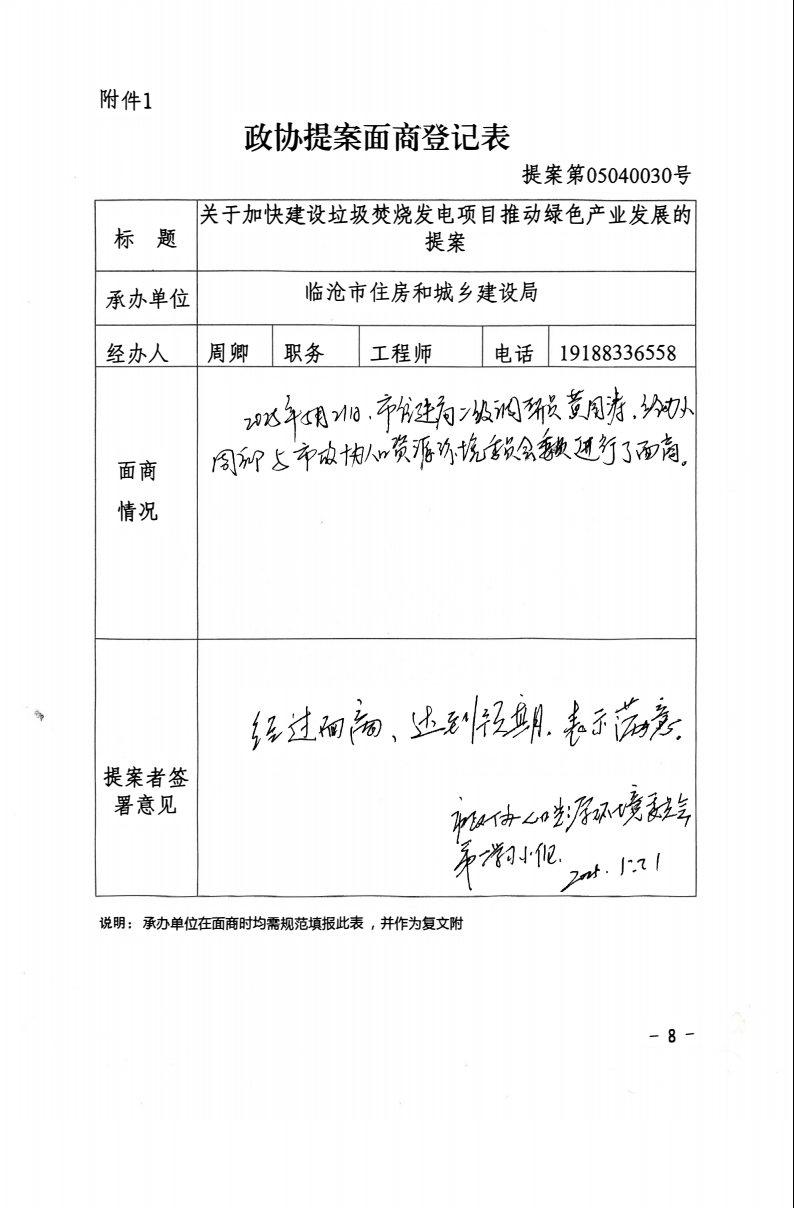 附件1
政协提案面商登记表
提案第05040030号
标 题
关于加快建设垃圾焚烧发电项目推动绿色产业发展的
提案
承办单位
临沧市住房和城乡建设局
经办人
周卿
职务
工程师
电话
19188336558
面商
情况
2025年5月21日,市住建局二级调研员黄国涛,经办人
周卿与市政协人口资源环境委员会进行了面商。
提案者签
署意见
经过面商、达到预期,表示满意。
市政协人口资源环境委员会
第 小组.
2025. 5.21
说明：承办单位在面商时均需规范填报此表,并作为复文附
- 8 -